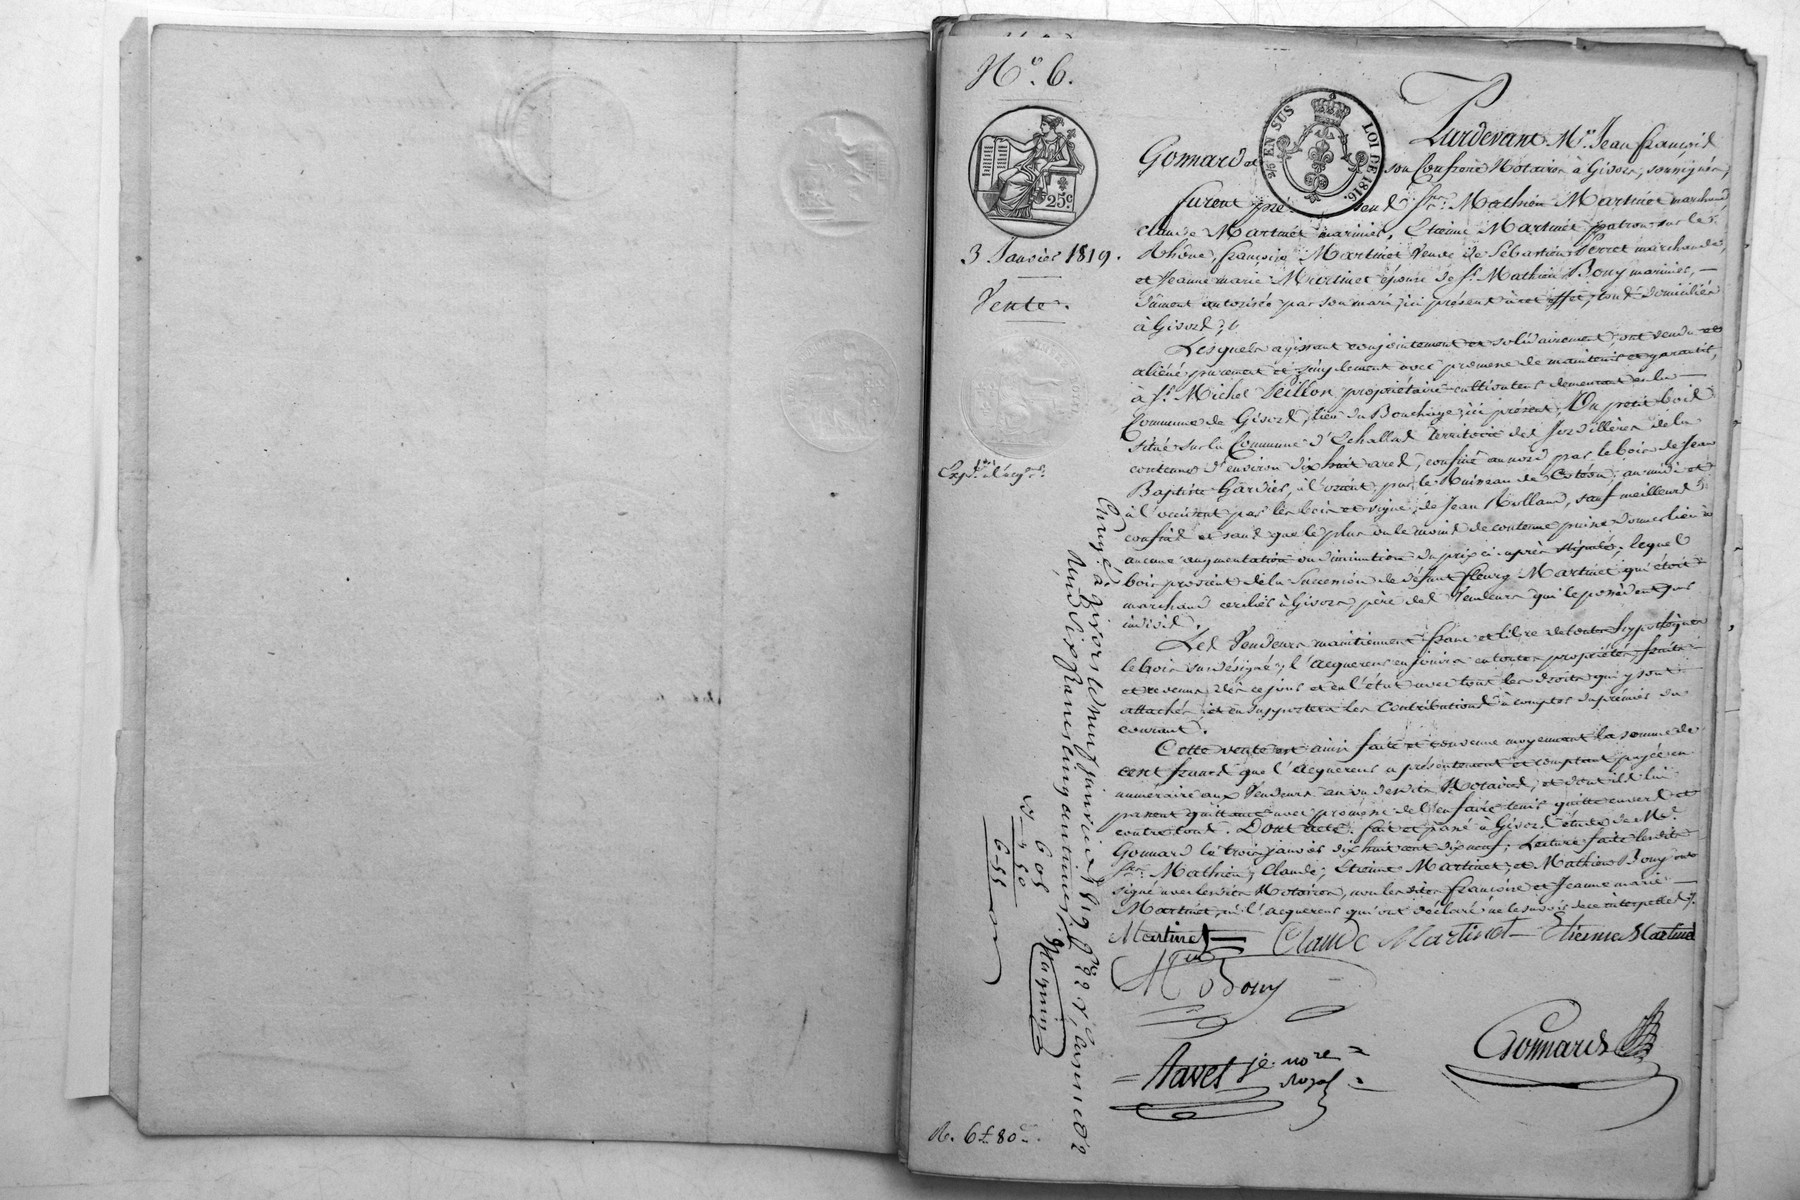 N.° 6.
25.c
2/5 EN SUS LOI DE 1816.
3 Janvier 1819.
Vente.
Pardevant M.e Jean François
Gonnard et son Confrere Notaires à Givors, soussignés,
furent présens S.rs Mathieu Martinet marchand,
Claude Martinet marinier, Etienne Martinet patron sur le
Rhône, françoise Martinet Veuve de Sébastien Perret marchande,
et Jeanne marie Martinet épouse de S.r Mathieu Bouy marinier, —
dûment autorisée par son mari, ici présent à cet effet, tous domiciliés
à Givors;
Lesquels agissant conjointement et solidairement, ont vendu et
aliéné purement et simplement avec promesse de maintenir et garantir,
à S.r Michel Veillon propriétaire-cultivateur demeurant en la —
Commune de Givors, lieu du Bouchage, ici présent, Un petit bois
situé sur la Commune d'Echallas territoire des de la
contenue d'environ dix huit ares, confiné au nord par le bois de Jean
Baptiste Gardier, à l'orient, par le Ruisseau de Cotéon, au midi et
à l'occident par les bois et vigne, de Jean Rolland, sauf meilleurs
confins et sans que le plus ou le moins de contenue puisse donner lieu à
aucune augmentation ou diminution du prix ci-après stipulé, lequel
bois provient de la Succession de défunt fleury Martinet qui étoit
marchand cerclier à Givors, père des Vendeurs qui le possèdent par
indivis.
Les Vendeurs maintiennent franc et libre de toutes hypothèques
le bois sus désigné; l'acquereur en jouira en toutes propriétés, fruits
et revenus, dès ce jour et en l'état avec tous les droits qui y sont
attachés et en supportera les Contributions à compter du premier du
courant.
Cette vente est ainsi faite et convenue moyennant la somme de
cent francs que l'acquereur a présentement et comptant payée en
numéraire aux Vendeurs au vu desdits Notaires, et dont ils lui
passent quittance avec promesse de l'en faire tenir quitte envers et
contre tous. Dont acte. fait et passé à Givors étude de M.e
Gonnard le trois janvier dix huit cent dix neuf; Lecture faite lesdits
S.rs Mathieu, Claude, Etienne Martinet, et Mathieu Bouy ont
signé avec lesdits Notaires, non lesdites françoise et Jeanne marie —
Martinet, ni l'acquereur qui ont déclaré ne le savoir de ce interpellés.
Martinet Claude Martinet Etienne Martinet
M.eu Bouy
Gonnard
Ravet j.e no.re royal
Enregé à Givors le neuf janvier 1819. f.° 22 r.° Cases 1 et 2
Reçu six francs cinquante cinq centimes.
6 05
50
6-55
R. 6 f. 80 c.